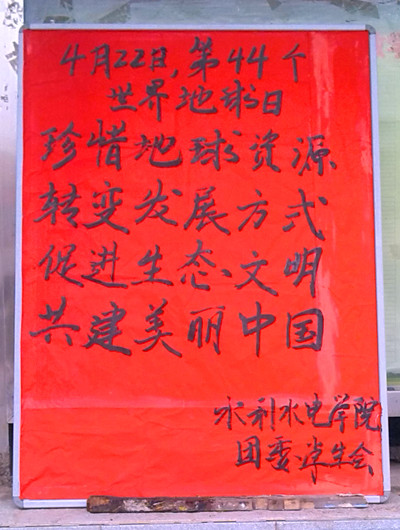 4月22日，第44个
世界地球日
珍惜地球资源
转变发展方式
促进生态文明
共建美丽中国
水利水电学院
团委·学生会